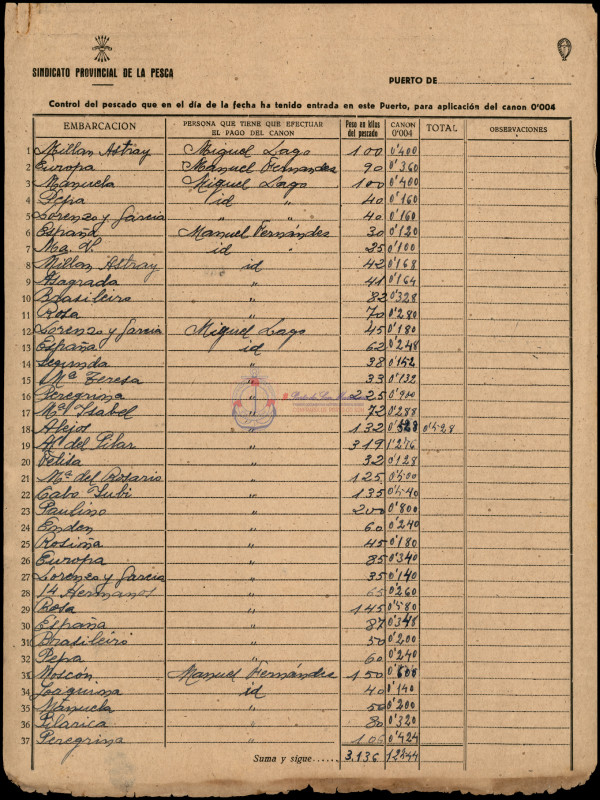 SINDICATO PROVINCIAL DE LA PESCA
PUERTO DE
Control del pescado que en el día de la fecha ha tenido entrada en este Puerto, para aplicación del canon 0'004
EMBARCACION PERSONA QUE TIENE QUE EFECTUAR EL PAGO DEL CANON Peso en kilos del pescado CANON 0'004 TOTAL OBSERVACIONES
1 Millan Astray Miguel Lago 100 0'400
2 Europa Manuel Fernandes 90 0'360
3 Manuela Miguel Lago 100 0'400
4 Pepa id " 40 0'160
5 Lorenzo y Garcia " " 40 0'160
6 España Manuel Fernández 30 0'120
7 id " 25 0'100
8 Millan Astray id 42 0'168
9 Sagrada " 41 0'164
10 Brasileiro " 82 0'328
11 Rosa " 70 0'280
12 Lorenzo y Garcia Miguel Lago 45 0'180
13 España id 62 0'248
14 Segunda " 38 0'152
15 Mª Teresa " 33 0'132
16 Peregrina " 225 0'900
17 Mª Isabel " 72 0'288
18 Alejos " 132 0'528 0'528
19 Mª del Pilar " 319 1'276
20 Felisa " 32 0'128
21 Mª del Rosario " 125 0'500
22 Cabo Subi " 135 0'540
23 Paulino " 200 0'800
24 Enden " 60 0'240
25 Rosiña " 45 0'180
26 Europa " 85 0'340
27 Lorenzo y Garcia " 35 0'140
28 14 Hermanos " 65 0'260
29 Rosa " 145 0'580
30 España " 87 0'348
31 Brasileiro " 50 0'200
32 Pepa " 60 0'240
33 Moscón Manuel Fernández 150 0'600
34 Joaquina id 40 0'140
35 Manuela " 50 0'200
36 Pilarica " 80 0'320
37 Peregrina " 106 0'424
Suma y sigue...... 3.136 12'44